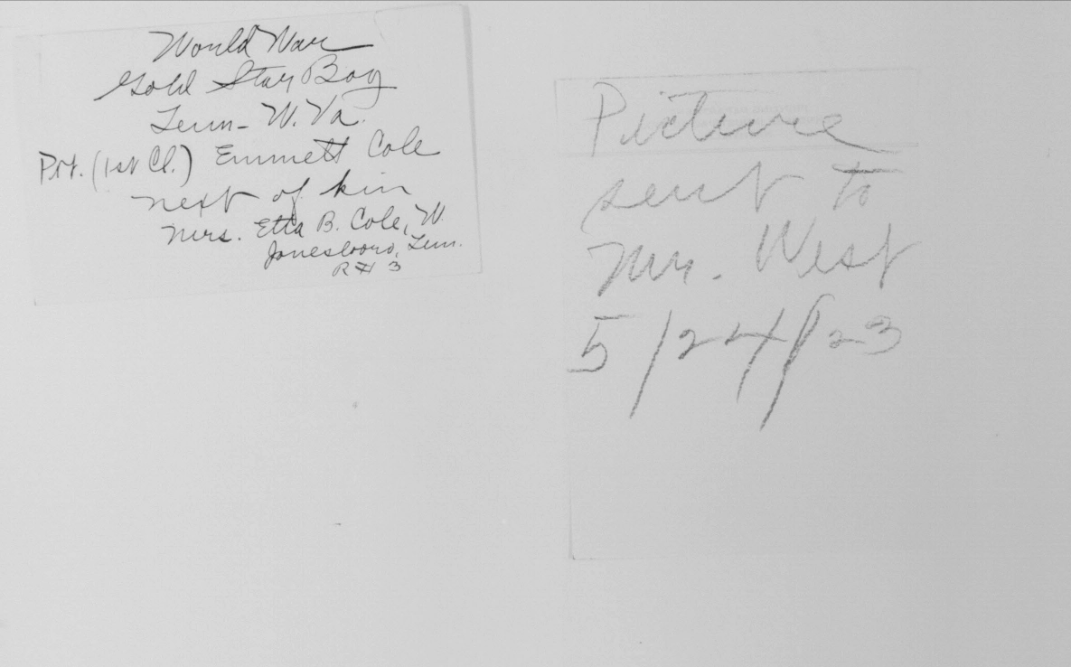 World War
Gold Star Boy
Tenn - W. Va.
Pvt. (1st Cl.) Emmett Cole
next of kin
Mrs. Etta B. Cole, W.
Jonesboro, Tenn.
R # 3
Picture
sent to
Mrs. West
5/24/23